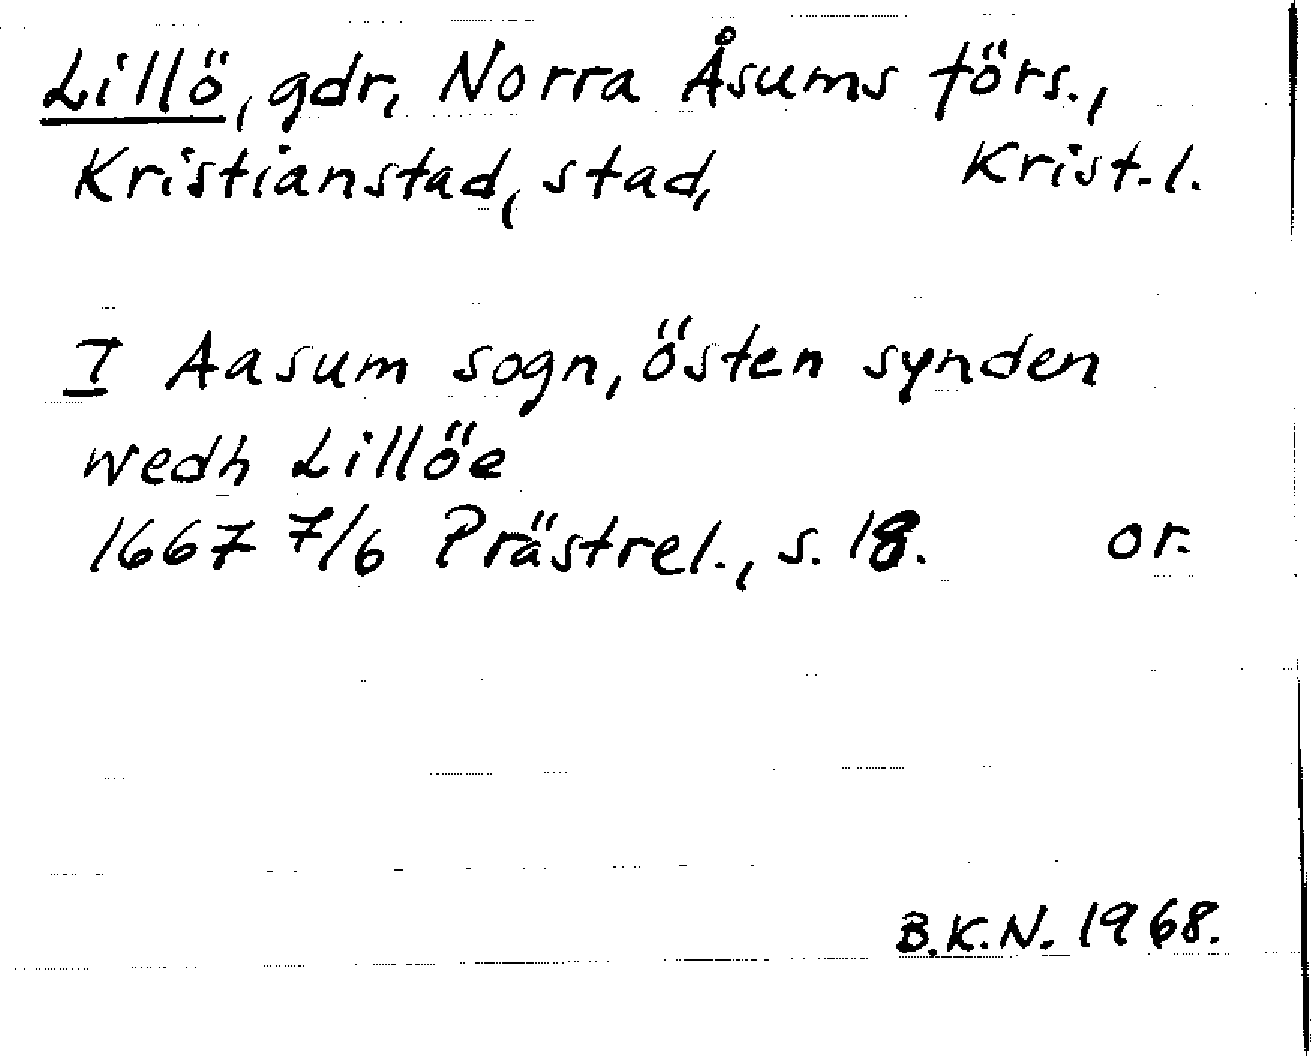 Lillö, gdr, Norra Åsums förs.,
Kristianstad, stad, Krist.l.
I Aasum sogn, östen synden
wedh Lillöe
1667 7/6 Prästrel., s. 18. or.
B.K.N. 1968.